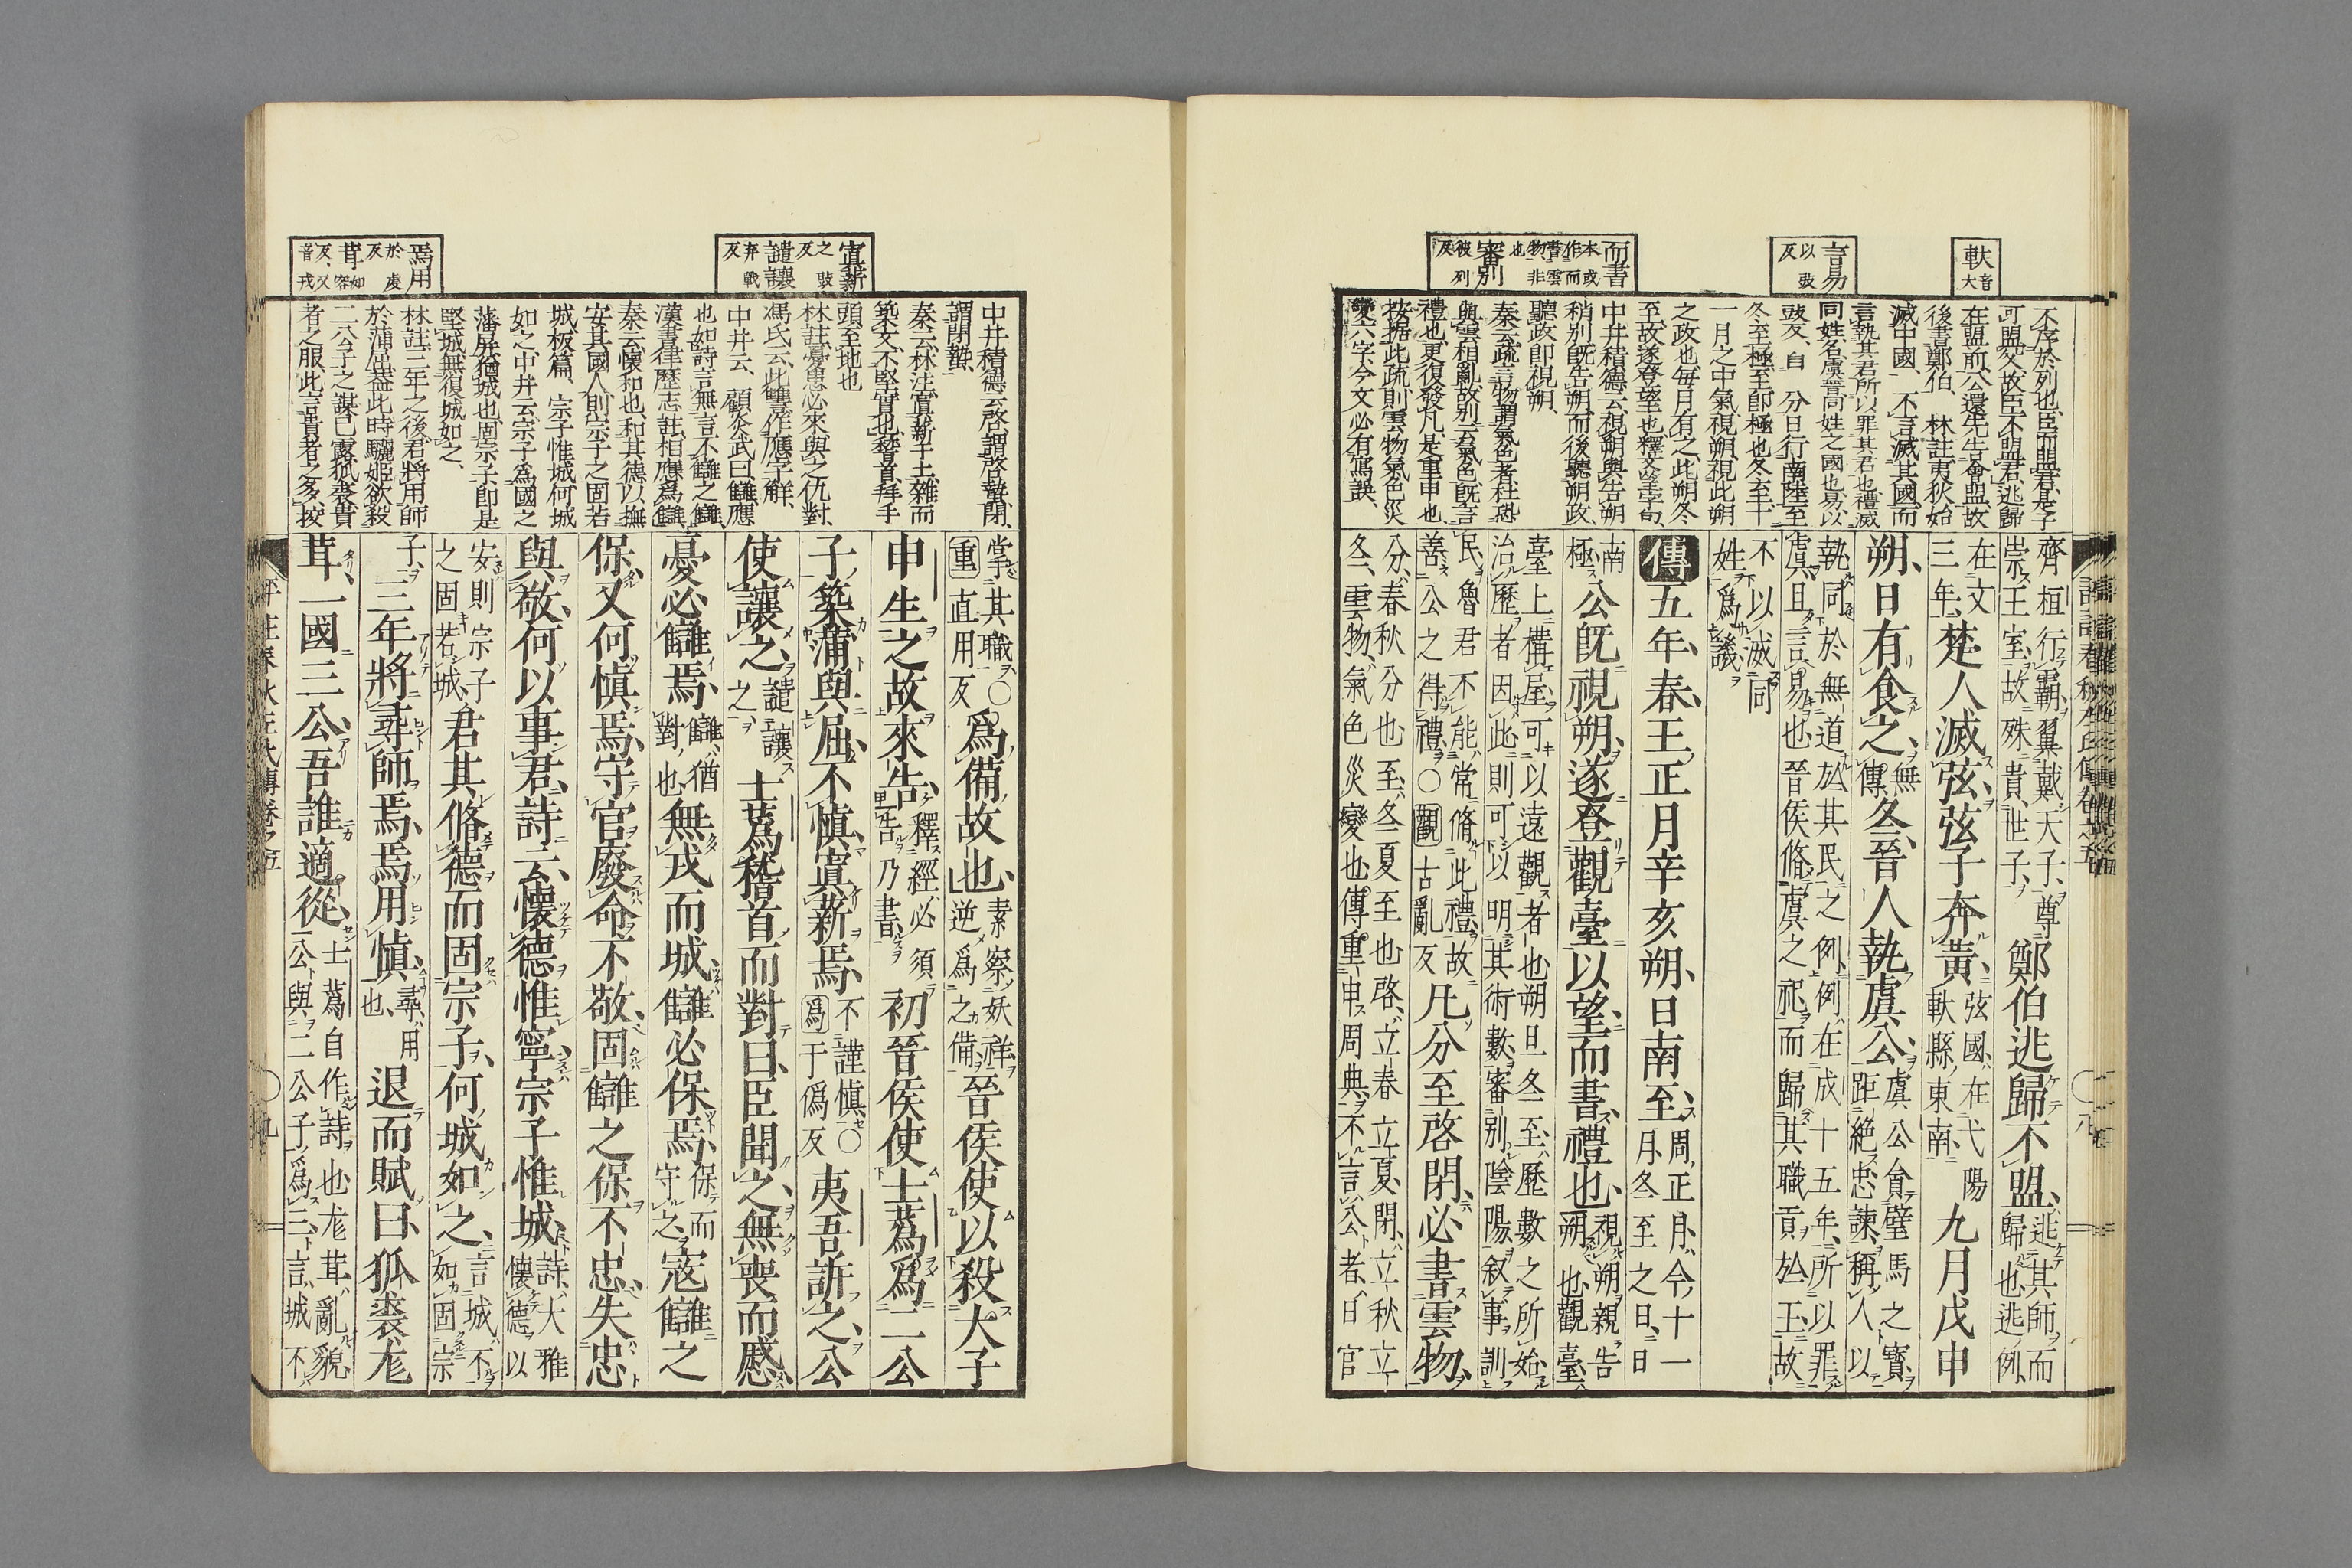 軑音大
言易以豉反
而書本或作而書雲物非也
審別彼列反
不序於列也臣而盟君是子
可盟父故臣不盟君逃歸
在盟前公還先生會盟故
後書鄭伯 林註夷狄始
滅中國 不言滅其國而
言執其君所以罪其君也禮滅
同姓名虞晉同姓之國也易以
豉反 自 分日行南陸至
冬至極至即極也冬至十
一月之中氣視朔視此朔
之政也每月有之此朔冬
至故遂登望也釋文望字句
中井積德云視朔與告朔
稍別既告朔而後聽朔政
聽政即視朔
秦云疏言物謂氣色者杜恐
與雲相亂故別云氣色既言
禮也更復發凡是重申也
按據此疏則雲物氣色災
變六字今文必有寫誤
齊桓行霸翼戴天子尊
崇王室故殊貴世子鄭伯逃歸不盟逃其師而
歸也逃例
在文
三年楚人滅弦弦子奔黃弦國在弋陽
軑縣東南九月戊申
朔日有食之無
傳冬晉人執虞公虞公貪璧馬之寶
距絕忠諫稱人以
執同於無道於其民之例例在成十五年所以罪
虞且言易也晉侯脩虞之祀而歸其職貢於王故
不以滅同
姓爲譏
傳五年春王正月辛亥朔日南至周正月今十一
月冬至之日日
南
極公既視朔遂登觀臺以望而書禮也視朔親告
朔也觀臺
臺上構屋可以遠觀者也朔旦冬至歷數之所始
治歷者因此則可以明其術數審別陰陽敘事訓
民魯君不能常脩此禮故
善公之得禮〇觀古亂反凡分至啓閉必書雲物
分春秋分也至冬夏至也啓立春立夏閉立秋立
冬雲物氣色災變也傳重申周典不言公者日官
寘薪之豉反
譴讓弃戰反
焉用於虔反
茸如容反又音戎
中井積德云啓謂啓蟄閉
謂閉蟄
秦云林注寘薪于土雜而
築之不堅實也稽首拜手
頭至地也
林註憂患必來與之仇對
馮氏云此讐作應字解
中井云 顧炎武曰讎應
也如詩言無言不讎之讎
漢書律歷志註相應爲讎
秦云懷和也和其德以撫
安其國人則宗子之固若
城板篇 宗子惟城何城
如之中井云宗子爲國之
藩屏猶城也固宗子即是
堅城無復城如之
林註三年之後君將用師
於蒲屈蓋此時驪姬欲殺
二公子之謀已露狐裘貴
者之服此言貴者之多挍
掌其職〇
重直用反爲備故也素察妖祥
逆爲之備晉侯使以殺大子
申生之故來告釋經必須
告乃書初晉侯使士蔿爲二公
子築蒲與屈不愼寘薪焉不謹愼〇
爲于僞反夷吾訴之公
使讓之譴讓
之士蔿稽首而對曰臣聞之無喪而慼
憂必讎焉讎猶
對也無戎而城讎必保焉保而
守之寇讎之
保又何愼焉守官廢命不敬固讎之保不忠失忠
與敬何以事君詩云懷德惟寧宗子惟城詩大雅
懷德以
安則宗子
之固若城君其脩德而固宗子何城如之言城不
如固宗
子三年將尋師焉焉用愼尋用
也退而賦曰狐裘尨
茸一國三公吾誰適從士蔿自作詩也尨茸亂貌
公與二公子爲三言城不